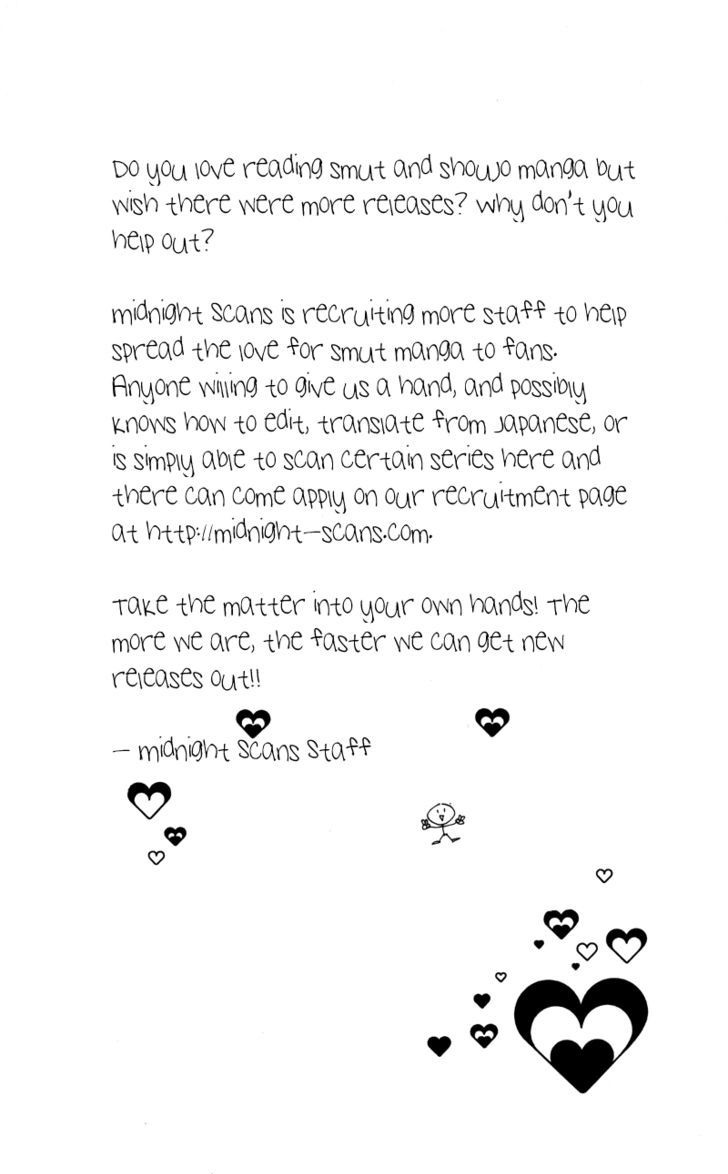 Do you love reading smut and shoujo manga but
wish there were more releases? Why don't you
help out?
Midnight Scans is recruiting more staff to help
spread the love for smut manga to fans.
Anyone willing to give us a hand, and possibly
knows how to edit, translate from Japanese, or
is simply able to scan certain series here and
there can come apply on our recruitment page
at http://midnight-scans.com.
Take the matter into your own hands! The
more we are, the faster we can get new
releases out!!
- Midnight Scans Staff